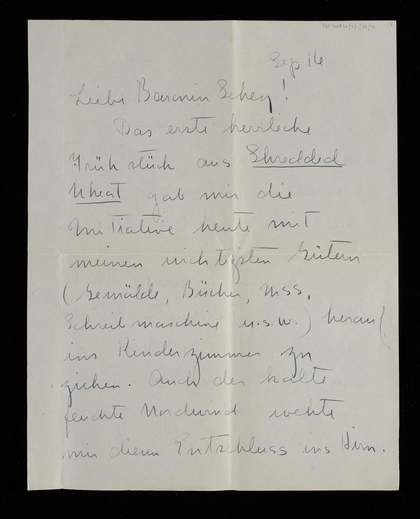 Sep. 16
Liebe Baronin Schey!
Das erste herrliche
Frühstück aus Shredded
Wheat gab mir die
Initiative heute mit
meinen wichtigsten Gütern
(Gemälde, Bücher, MSS,
Schreibmaschine u.s.w.) herauf
ins Kinderzimmer zu
ziehen. Auch der kalte
feuchte Nordwind wehte
mir diesen Entschluss ins Hirn.